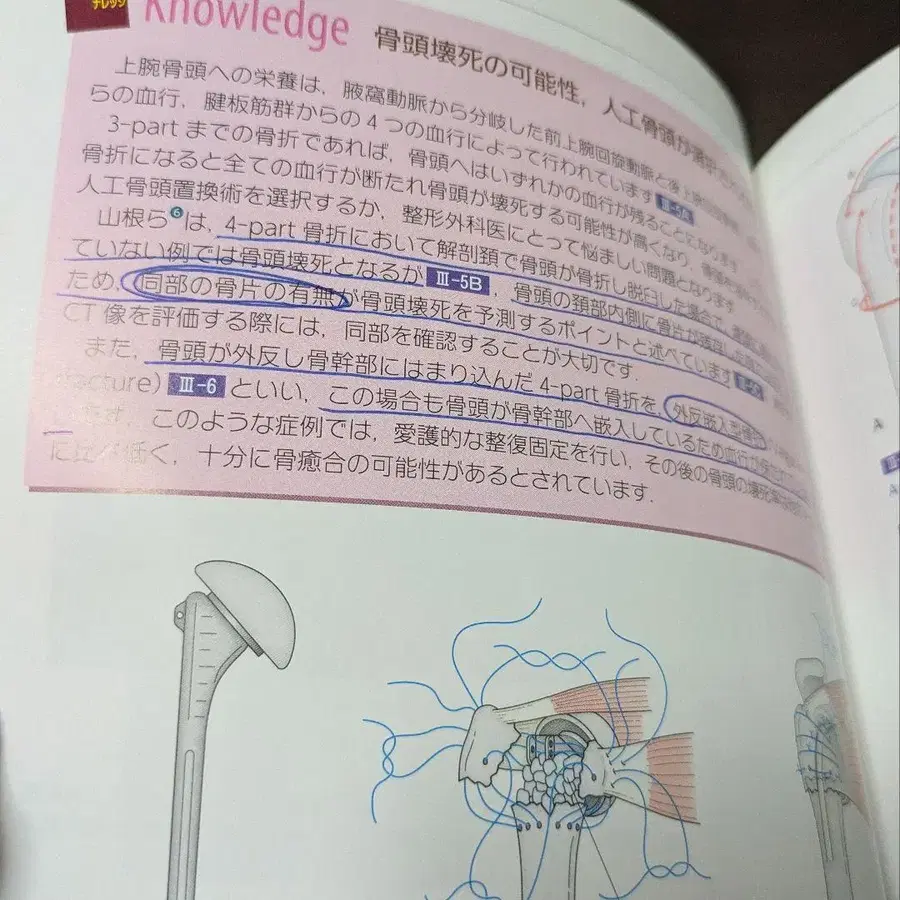 ナレッジ
Knowledge 骨頭壊死の可能性，人工骨頭が選択
上腕骨頭への栄養は，腋窩動脈から分岐した前上腕回旋動脈と後上腕
らの血行，腱板筋群からの4つの血行によって行われています Ⅲ-5A
3-part までの骨折であれば，骨頭へはいずれかの血行が残ることになります
骨折になると全ての血行が断たれ骨頭が壊死する可能性が高くなり，
人工骨頭置換術を選択するか，整形外科医にとって悩ましい問題となります
山根ら❻は，4-part 骨折において解剖頚で骨頭が骨折し脱臼した場合で，
ていない例では骨頭壊死となるが Ⅲ-5B ，骨頭の頚部内側に骨片が
ため，同部の骨片の有無が骨頭壊死を予測するポイントと述べています
CT 像を評価する際には，同部を確認することが大切です．
また，骨頭が外反し骨幹部にはまり込んだ 4-part 骨折を，外反嵌入型
fracture） Ⅲ-6 といい，この場合も骨頭が骨幹部へ嵌入しているため血行が
このような症例では，愛護的な整復固定を行い，その後の骨頭の壊死率は
に比べ低く，十分に骨癒合の可能性があるとされています．
A
A